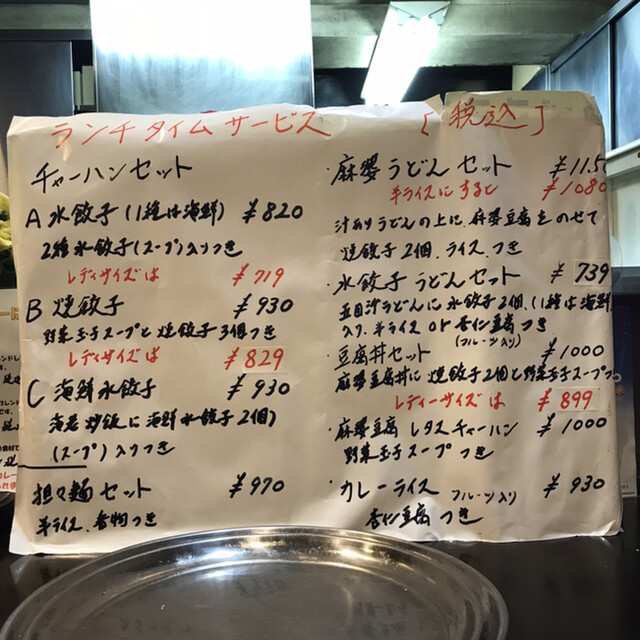 ランチタイムサービス [税込]
チャーハンセット
A 水餃子(1種は海鮮) ¥820
2種水餃子(スープ)入りつき
レディサイズは ¥719
B 焼餃子 ¥930
野菜玉子スープと焼餃子3個つき
レディサイズは ¥829
C 海鮮水餃子 ¥930
海老炒飯に海鮮水餃子2個)
(スープ)入りつき
担々麺セット ¥970
半ライス、香物つき
・麻婆うどんセット ¥115
半ライスにすると ¥1080
汁ありうどんの上に、麻婆豆腐をのせて
焼餃子2個、ライス、つき
・水餃子うどんセット ¥739
五目汁うどんに水餃子2個、(1種は海鮮)
入り、半ライス or 杏仁豆腐つき
(フルーツ入り)
・豆腐丼セット ¥1000
麻婆豆腐丼に焼餃子2個と野菜玉子スープつ
レディーサイズは ¥899
・麻婆豆腐レタスチャーハン ¥1000
野菜玉子スープつき
・カレーライス フルーツ入り ¥930
杏仁豆腐つき